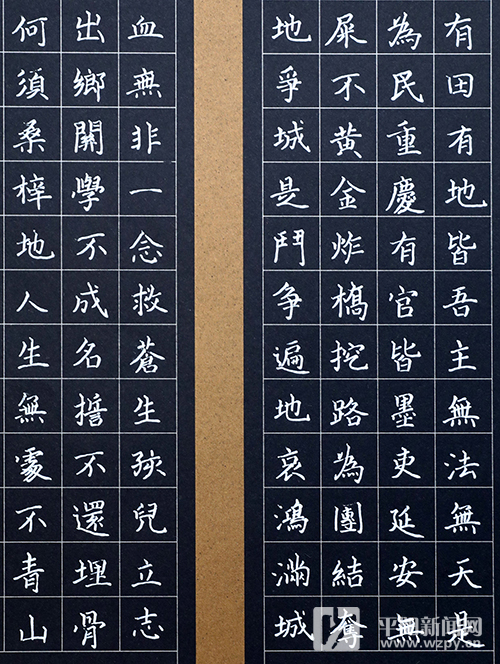 有田有地皆吾主無法無天是
為民重慶有官皆墨吏延安無
屎不黃金炸橋挖路為團結奪
地爭城是鬥争遍地哀鴻滿城
血無非一念救蒼生孩兒立志
出鄉關學不成名誓不還埋骨
何須桑梓地人生無處不青山
平阳新闻网
www.wzpy.cn